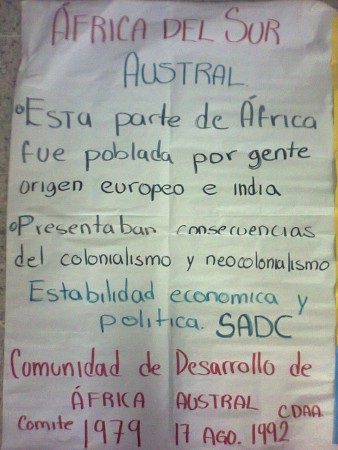 ÁFRICA DEL SUR
AUSTRAL
•ESTA parte de ÁFrica
fue poblada por gente
origen europeo e india
•Presentaban consecuencias
del colonialismo y neocolonialismo
Estabilidad economica y
politica. SADC
Comunidad de Desarrollo de
ÁFRICA AUSTRAL CDAA
Comite 1979 17 AGO. 1992